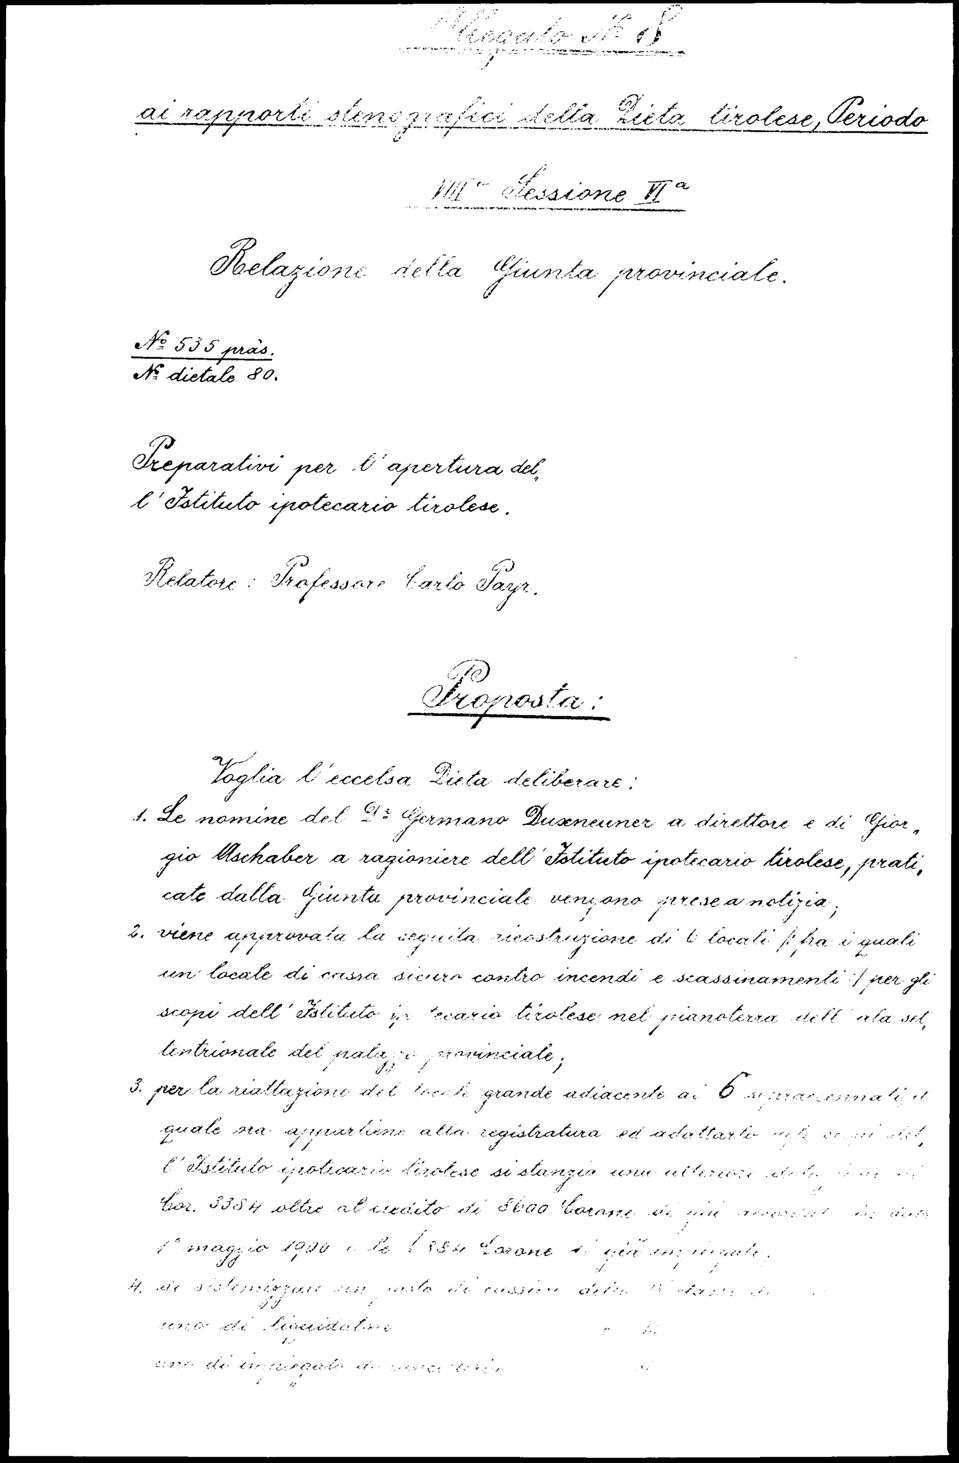 Allegato Nr. 18
ai rapporti stenografici della Dieta tirolese, Periodo
VIII a Sessione VI a
Relazione della Giunta provinciale.
No 535 präs.
No dietale 80.
Preparativi per l'apertura del„
l'Istituto ipotecario tirolese.
Relatore: Professore Carlo Payr.
Proposta:
Voglia l'eccelsa Dieta deliberare:
1. Le nomine del Dr. Germano Duxneuner a direttore e di Gior„
gio Aschaber a ragioniere dell'Istituto ipotecario tirolese, prati„
cate dalla Giunta provinciale vengono prese a notizia;
2. viene approvata la seguita ricostruzione di 6 locali /: fra i quali
un locale di cassa sicuro contro incendi e scassinamenti :/ per gli
scopi dell'Istituto ipotecario tirolese nel pianoterra dell'ala set„
tentrionale del palazzo provinciale;
3. per la riattazione del locale grande adiacente ai 6 sopraccennati, il
quale ora appartiene alla registratura ed adattarlo agli scopi del„
l'Istituto ipotecario tirolese si stanzia una ulteriore
Cor. 3384 oltre al credito di 8600 Corone di già
1o maggio 1900 e le 1884 Corone di già impiegate;
4. di sistemizzare un posto di cassiere della classe
uno di liquidatore
uno di impiegato di cancelleria